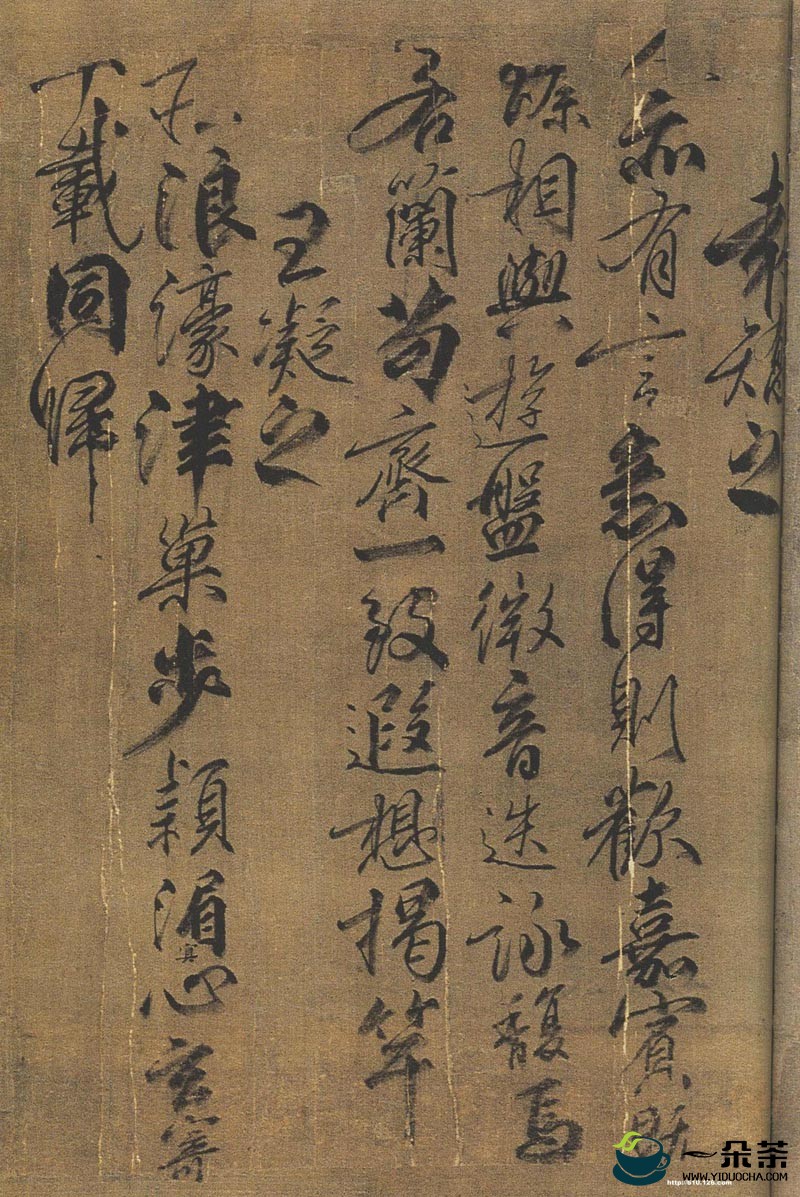 袁之
人亦有言意得則歡嘉賓既
臻相與遊盤微音迭詠馥焉
若蘭苟齊一致遐想揭竿
王凝之
莊浪濠津巢步潁湄冥心玄寄
千載同歸
一朵茶
WWW.YIDUOCHA.COM